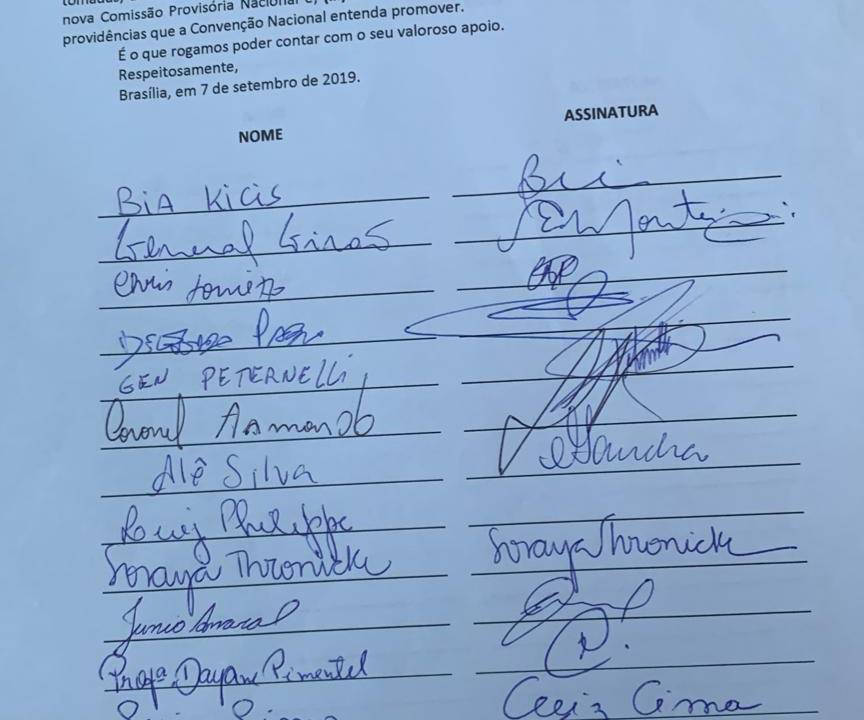 nova Comissão Provisória Nacional e,
providências que a Convenção Nacional entenda promover.
É o que rogamos poder contar com o seu valoroso apoio.
Respeitosamente,
Brasília, em 7 de setembro de 2019.
NOME ASSINATURA
BiA Kicis Bia
General Girão
Chris Tonietto
GEN PETERNELLI
Coronel Armando
Alê Silva
Luiz Philippe
Soraya Thronicke Soraya Thronicke
Junio Amaral
Profª Dayane Pimentel